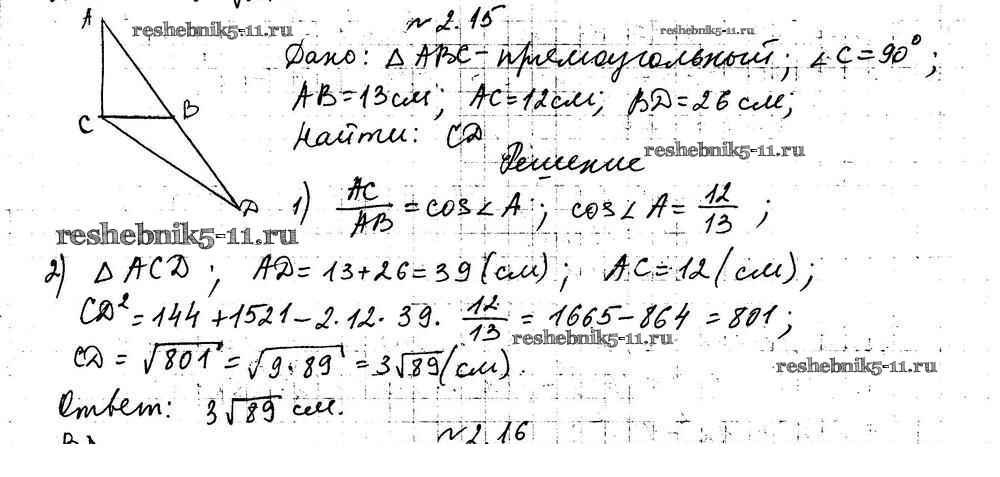 № 2.15
A
reshebnik5-11.ru
reshebnik5-11.ru
Дано: △ ABC - прямоугольный; ∠C = 90°;
AB = 13 см; AC = 12 см; BD = 26 см;
C
B
Найти: CD
reshebnik5-11.ru
Решение
D
1) AC/AB = cos∠A; cos∠A = 12/13;
reshebnik5-11.ru
2) △ ACD; AD = 13 + 26 = 39 (см); AC = 12 (см);
CD² = 144 + 1521 - 2·12·39·12/13 = 1665 - 864 = 801;
reshebnik5-11.ru
CD = √801 = √9·89 = 3√89 (см).
reshebnik5-11.ru
Ответ: 3√89 см.
№ 2.16